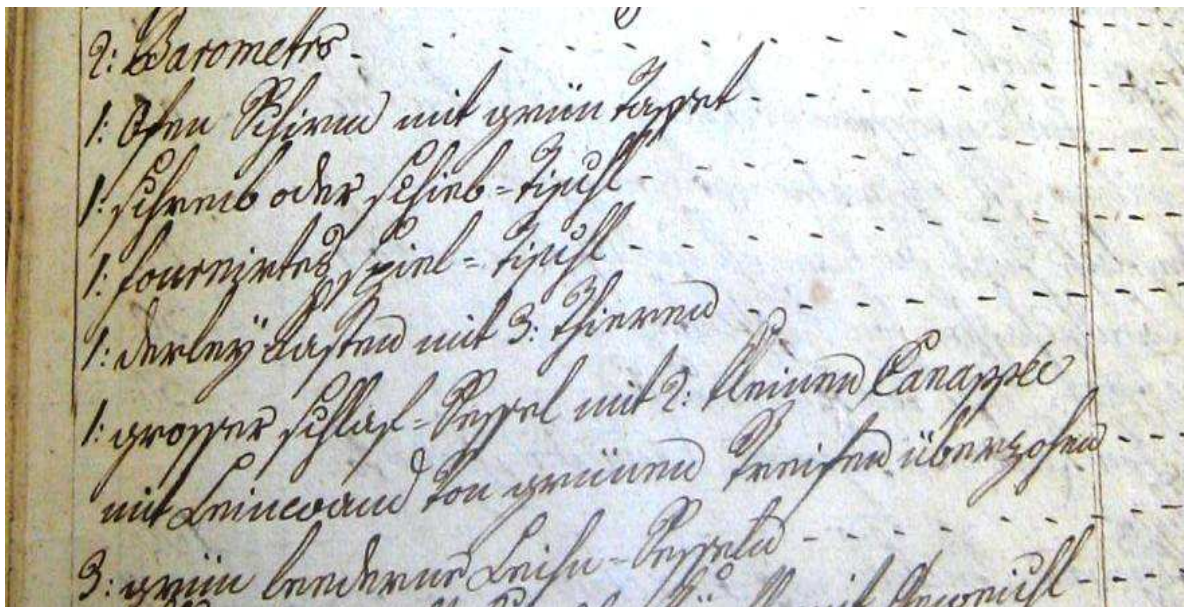 2: Barometrs
1: Ofen Schirm mit grün Taffet
1: schreib oder schieb=Tischl
1: fournirtes spiel=Tischl
1: derleÿ Casten mit 3: Thieren
1: grosser schlaf=Sessel mit 2: kleinen Canappée
mit Leinwand von grünen Streifen überzohen
3: grün lederne Leihn=Sesseln
mit